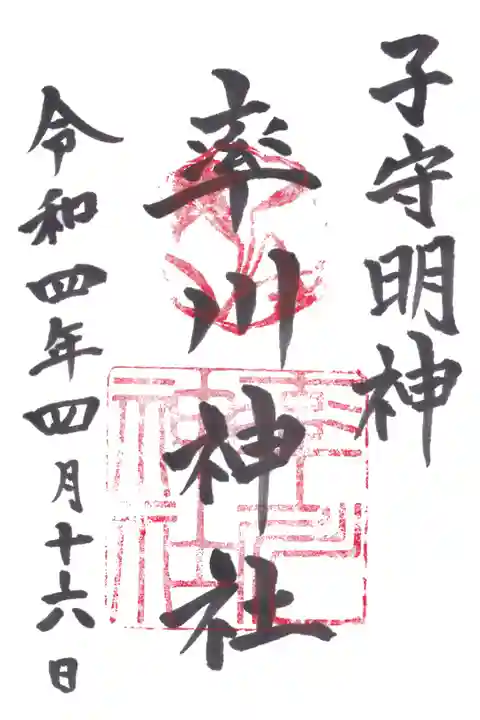 子守明神
率川神社
令和四年四月十六日